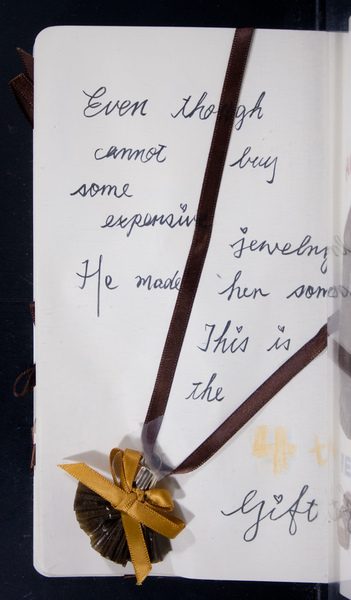 Even though
cannot buy
some
expensive
jewelry
He made her some
This is
the
Gift